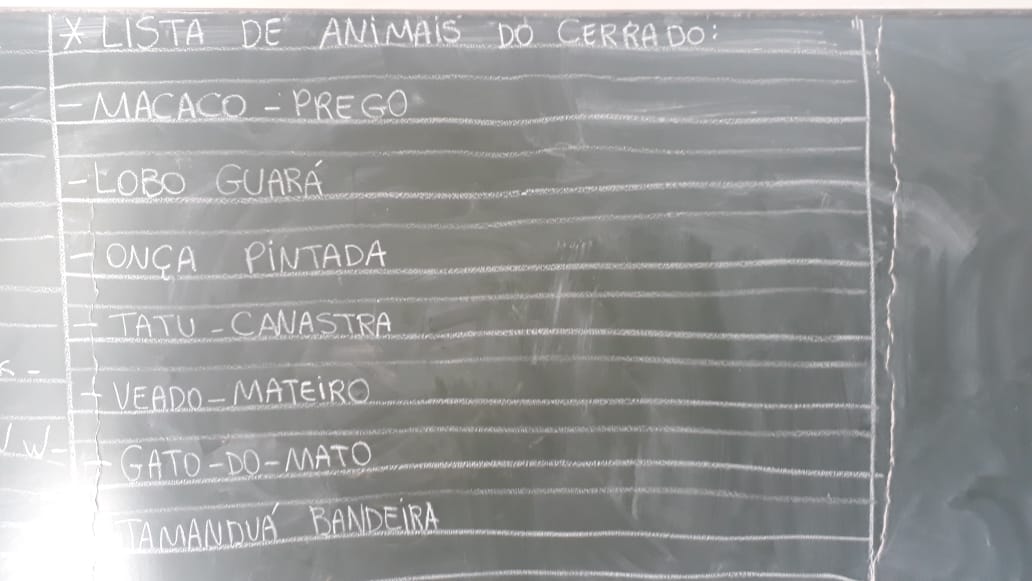 * LISTA DE ANIMAIS DO CERRADO:
- MACACO - PREGO
- LOBO GUARÁ
- ONÇA PINTADA
- TATU - CANASTRA
- VEADO - MATEIRO
- GATO - DO - MATO
TAMANDUÁ BANDEIRA